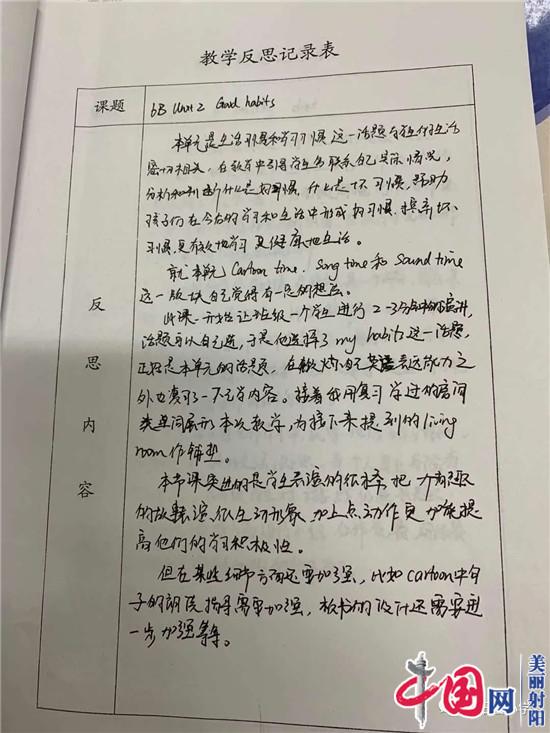 教学反思记录表
课题
6B Unit 2 Good habits
反思内容
本单元是生活习惯和学习习惯这一话题与学生的生活
密切相关,在教学中引导学生多联系自己实际情况,
分析和判断什么是好习惯,什么是坏习惯,帮助
孩子们在今后的学习和生活中形成好习惯,摒弃坏
习惯,更有效地学习更健康地生活。
就本单元 Cartoon time, Song time 和 Sound time
这一版块自己觉得有一些的想法。
此课一开始让班级一个学生进行2-3分钟的演讲,
话题可以自己选,于是他选择了 my habits 这一话题,
正好是本单元的话题,在教授自己英语表达能力之
外也复习一下所学内容。接着我用复习学过的房间
类单词展示本次教学,为接下来提到的 living
room 作铺垫。
本节课表演的是学生表演的很棒,把
的故事演似生动形象 加上点动作更加能提
高他们的学习积极性。
但在某些细节方面还需加强,比如 cartoon 中句
子的朗读指导需要加强,板书的设计还需要进
一步加强等等。
中国网
美丽射阳